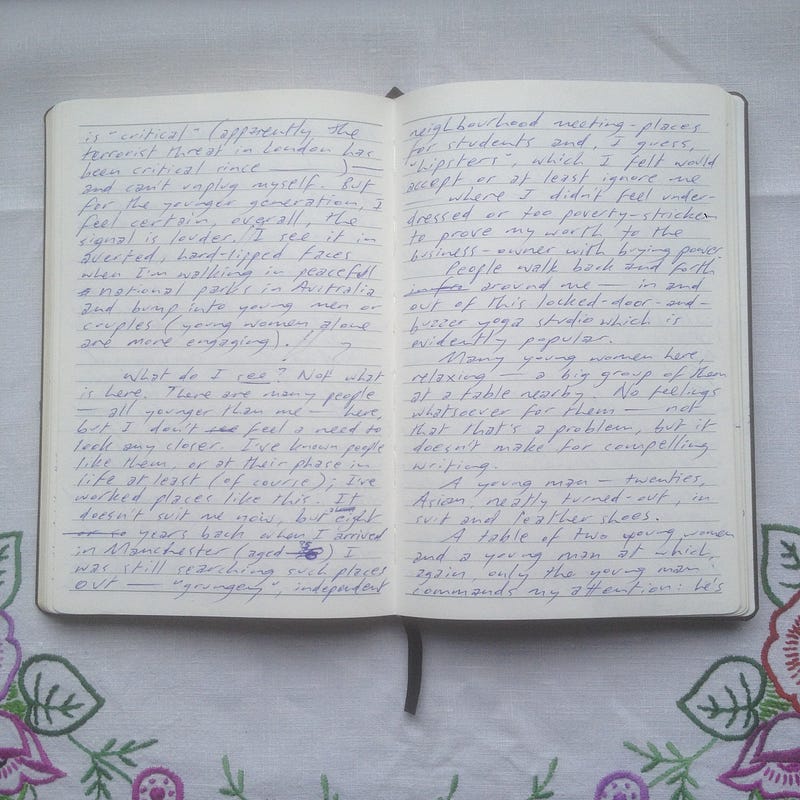 is "critical" (apparently the
terrorist threat in London has
been critical since ______)—
and can't unplug myself. But
for the younger generation, I
feel certain, overall, the
signal is louder. I see it in
averted, hard-lipped faces
when I'm walking in peaceful
national parks in Australia
and bump into young men or
couples (young women alone
are more engaging).
What do I see? Not what
is here. There are many people
— all younger than me — here,
but I don't see feel a need to
look any closer. I've known people
like them, or at their phase in
life at least (of course); I've
worked places like this. It
doesn't suit me now, but about eight
or so years back when I arrived
in Manchester (aged) I
was still searching such places
out — "grungey", independent
neighbourhood meeting-places
for students and, I guess,
"hipsters", which I felt would
accept or at least ignore me
— where I didn't feel under-
dressed or too poverty-stricken
to prove my worth to the
business-owner with buying power.
People walk back and forth
around me — in and
out of this locked-door-and-
buzzer yoga studio which is
evidently popular.
Many young women here,
relaxing — a big group of them
at a table nearby. No feelings
whatsoever for them — not
that that's a problem, but it
doesn't make for compelling
writing.
A young man — twenties,
Asian, neatly turned-out, in
suit and leather shoes.
A table of two young women
and a young man at which,
again, only the young man
commands my attention: he's